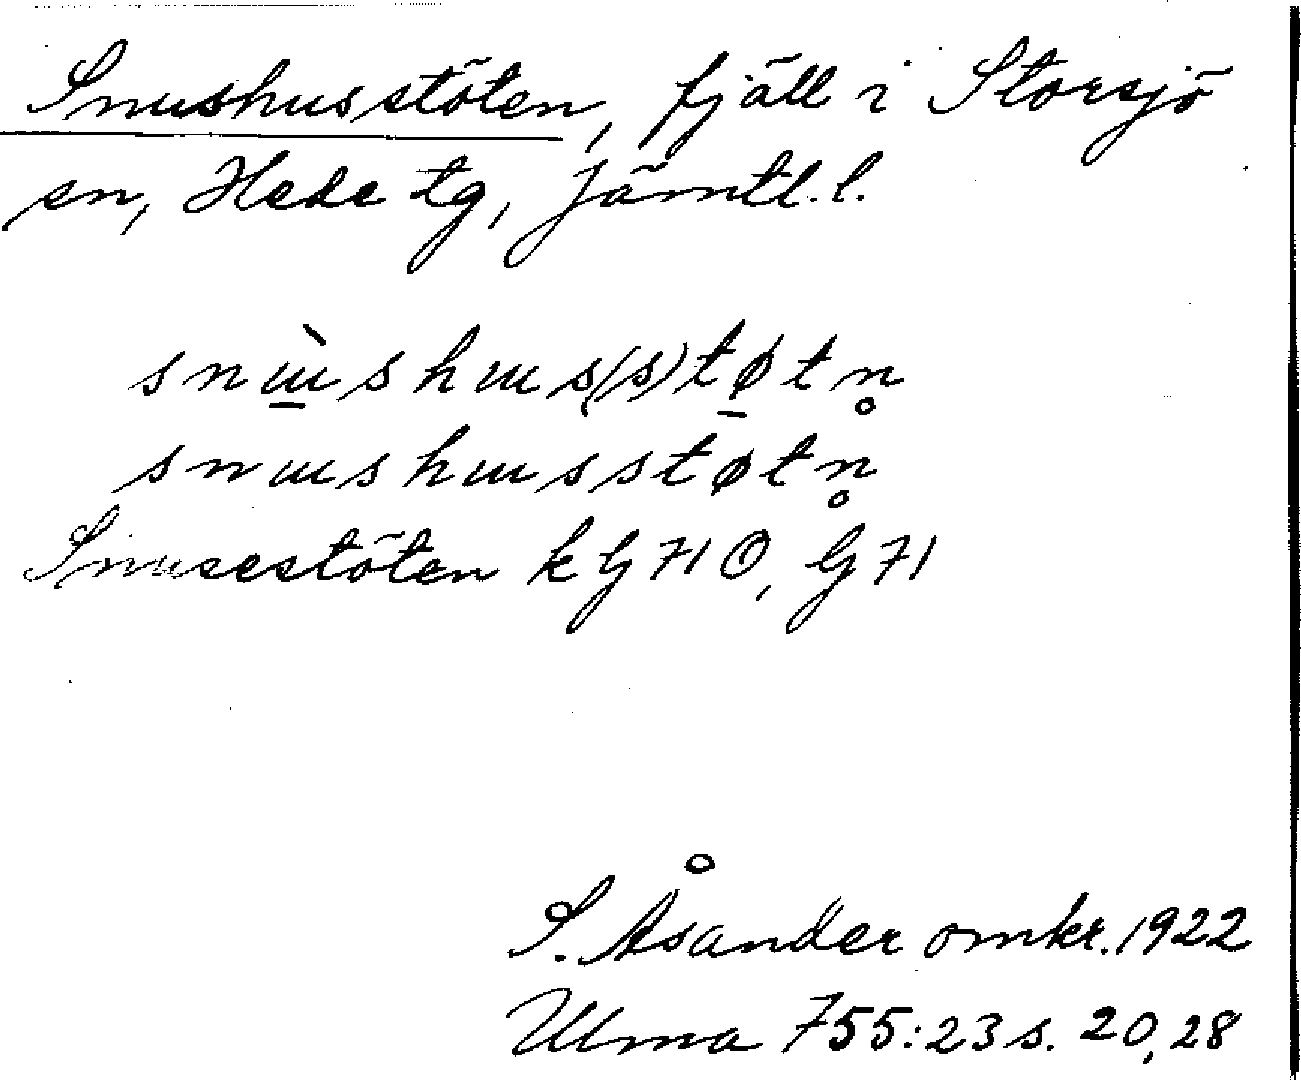 Snushusstöten, fjäll i Storsjö
sn, Hede tg, Jämtl. l.
snɯ̱̀shɯs(s)tø̱tn̥
snɯshɯsstøtn̥
Snusestöten k G 71 Ö, G 71
S. Åsander omkr. 1922
Ulma 755:23 s. 20, 28